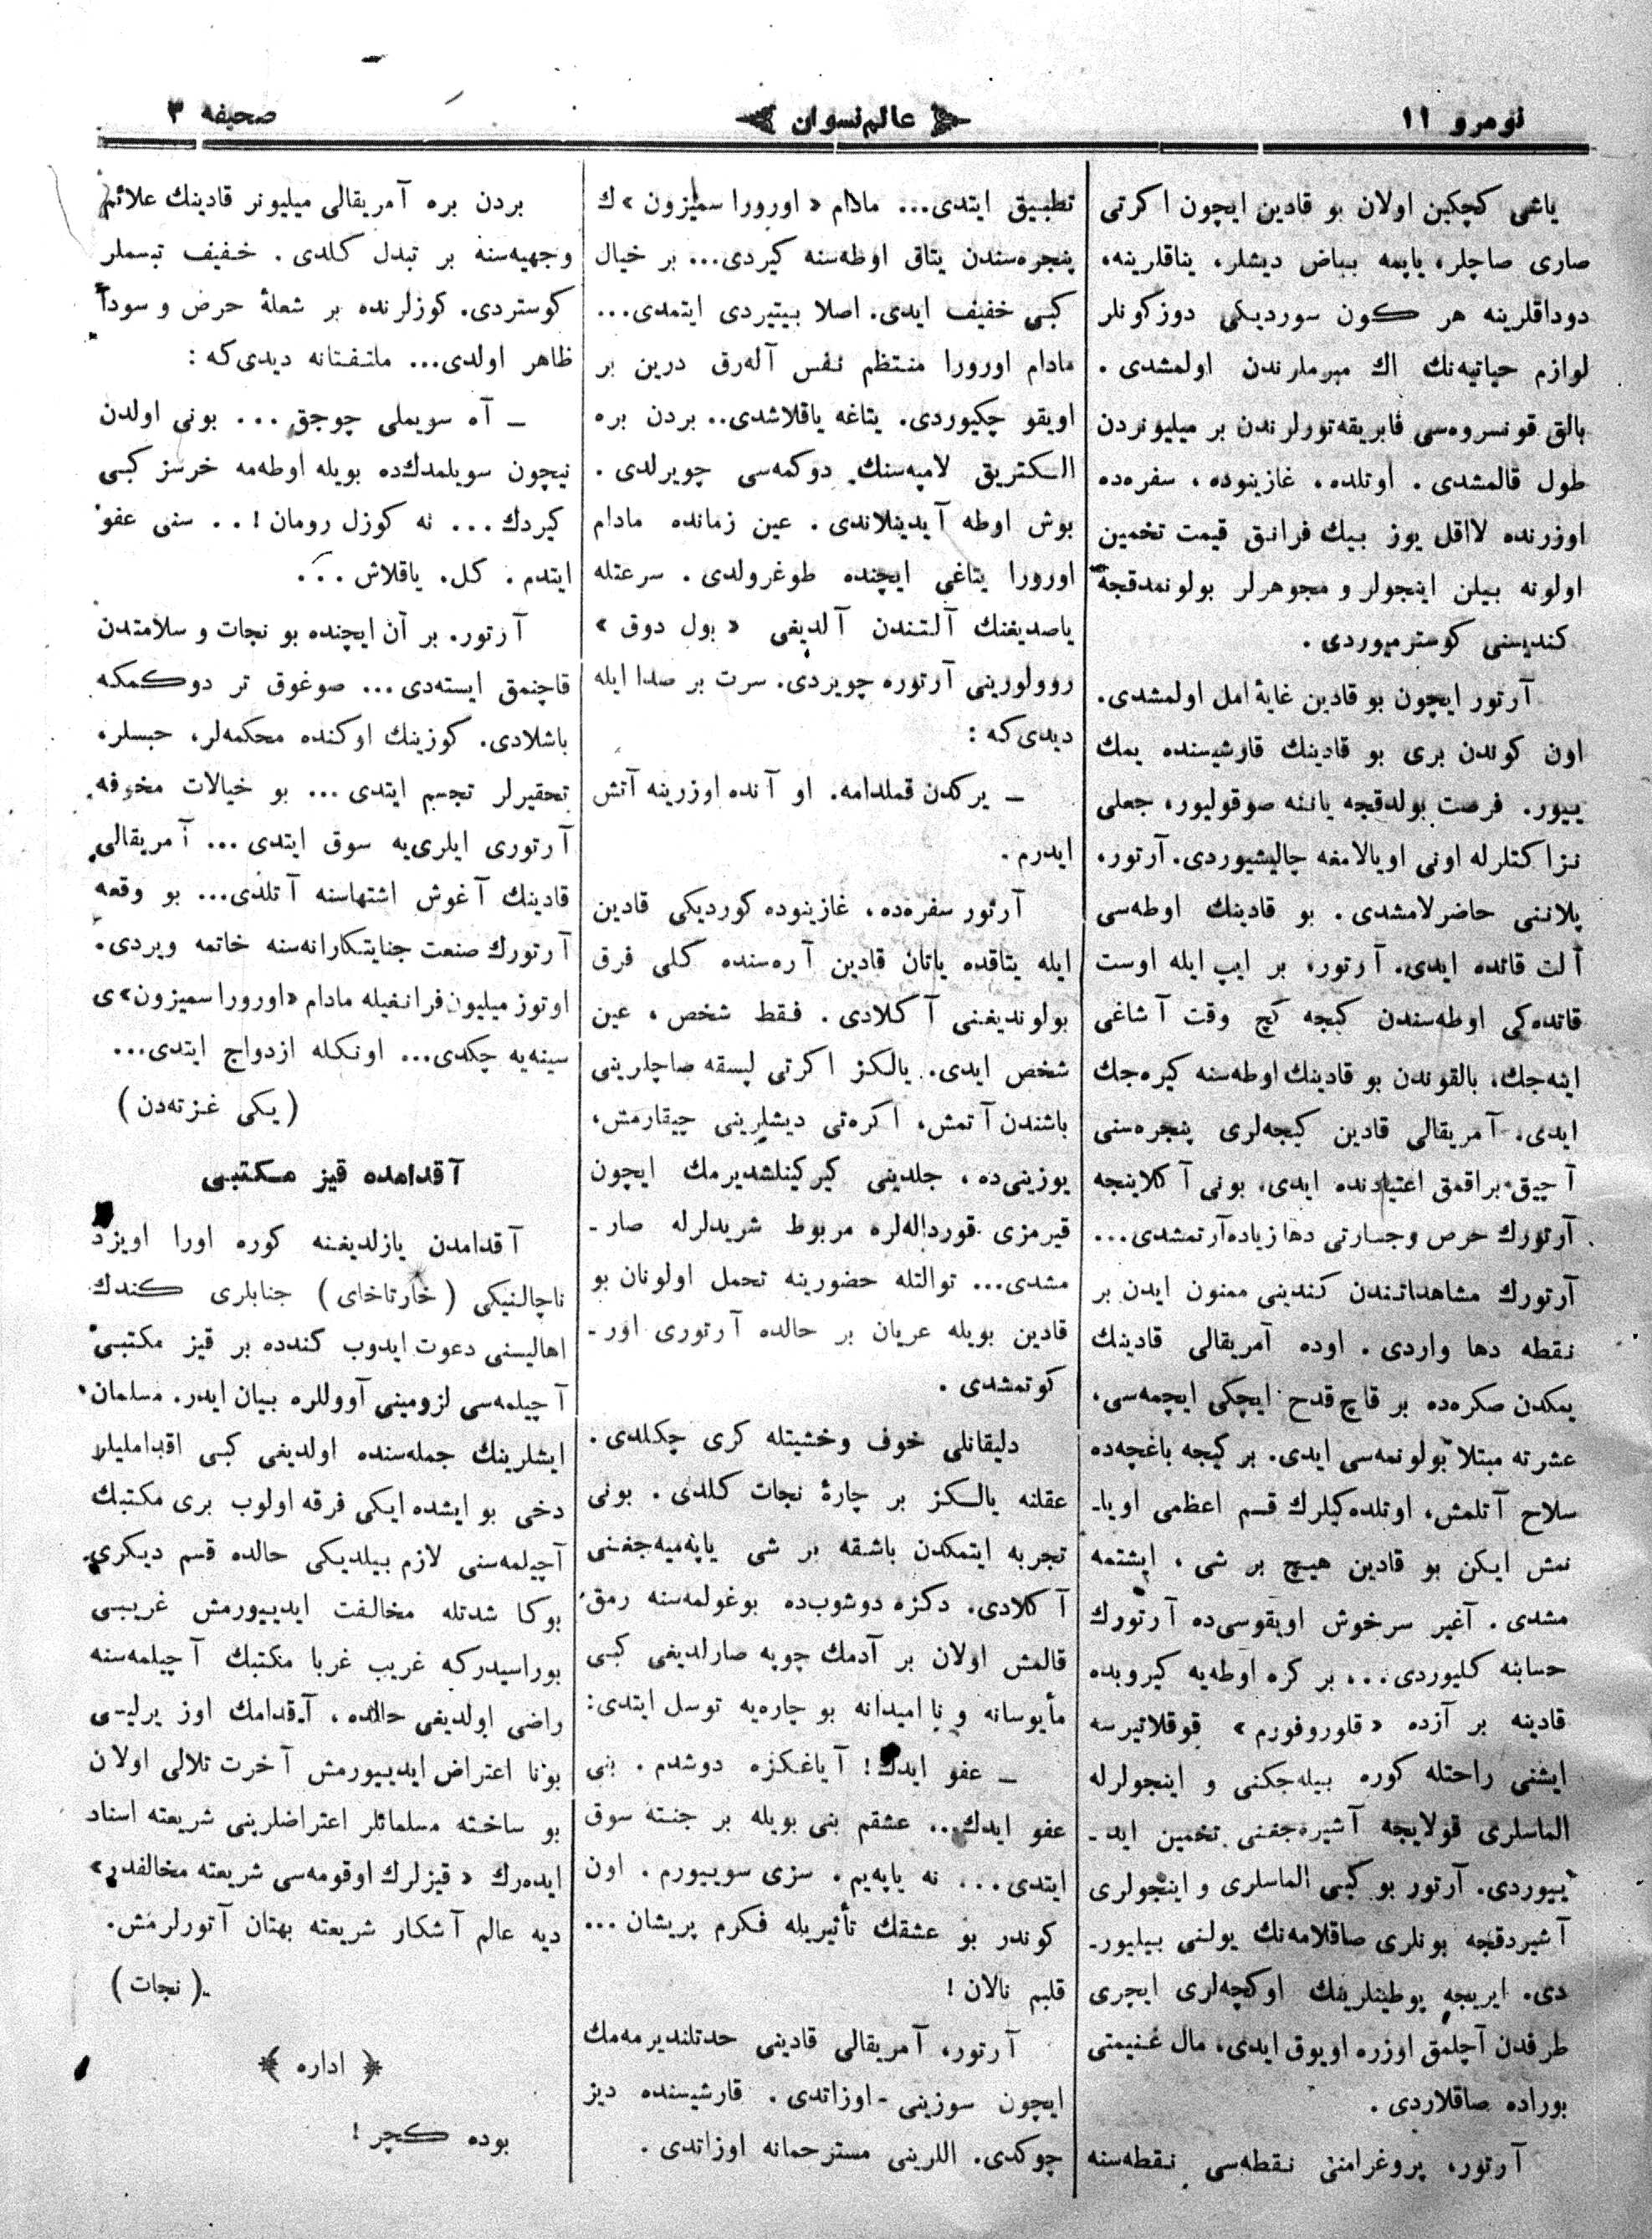 نومرو ١١
عالم نسوان
صحيفه ٣
ياشى كچكين اولان بو قادين ايچون اكرتى
صارى صاچلر، ياپمه بياض ديشلر، يناقلرينه،
دوداقلرينه هر كون سورديكى دوزكونلر
لوازم حياتيه‌نك اك مبرملرندن اولمشدى .
بالق قونسروه‌سى فابريقه‌تورلرندن بر ميليونردن
طول قالمشدى . اوتلده، غازينوده ، سفره‌ده
اوزرنده لااقل يوز بيك فرانق قيمت تخمين
اولونه بيلن اينجولر و مجوهرلر بولونمدقجه
كنديسنى كوسترميوردى .
آرتور ايچون بو قادين غايۀ امل اولمشدى.
اون كوندن برى بو قادينك قارشيسنده يمك
ييور. فرصت بولدقجه يانـنه صوقوليور، جعلى
نزاكتلرله اونى اويالامغه چاليشيوردى. آرتور،
پلاننى حاضرلامشدى . بو قادينك اوطه‌سى
آلت قاتده ايدى. آرتور، بر ايپ ايله اوست
قاتده‌كى اوطه‌سندن كيجه كچ وقت آشاغى
اينه‌جك، بالقوندن بو قادينك اوطه‌سنه كيره‌جك
ايدى. آمريقالى قادين كيجه‌لرى پنجره‌سنى
آچيق براقمق اعتيادنده ايدى. بونى آكلاينجه
آرتورك حرص وجسارتى دها زياده آرتمشدى...
آرتورك مشاهداتـندن كندينى ممنون ايدن بر
نقطه دها واردى . اوده آمريقالى قادينك
يمكدن صكره‌ده بر قاچ قدح ايچكى ايچمه‌سى،
عشرته مبتلا بولونمه‌سى ايدى. بر كيجه باغچه‌ده
سلاح آتلمش، اوتلده‌كيلرك قسم اعظمى اويا-
نمش ايكن بو قادين هيچ بر شى ، ايشتمه
مشدى . آغير سرخوش اويقوسى‌ده آرتورك
حسابنه كليوردى... بر كره اوطه‌يه كيروبده
قادينه بر آزده « قلوروفورم » قوقلاتيرسه
ايشنى راحتله كوره بيله‌جكنى و اينجولرله
الماسلرى قولايجه آشيره‌جغنى تخمين ايد-
ييوردى. آرتور بو كبى الماسلرى و اينجولرى
آشيردقجه بونلرى صاقلامه‌نك يولنى بيليور-
دى. ايريجه پوطينلرينك اوكچه‌لرى ايچرى
طرفدن آچلمق اوزره اويوق ايدى، مال غنيمتى
بوراده صاقلاردى .
آرتور، پروغرامنى نقطه‌سى نقطه‌سنه
تطبيق ايتدى... مادام « اورورا سميزون »ك
پنجره‌سندن يتاق اوطه‌سنه كيردى... بر خيال
كبى خفيف ايدى. اصلا بيتيردى ايتمدى...
مادام اورورا منتظم نفس آله‌رق درين بر
اويقو چكيوردى. يتاغه ياقلاشدى.. بردن بره
الكتريق لامپه‌سنك دوكمه‌سى چويرلدى .
بوش اوطه آيدينلاندى . عين زمانده مادام
اورورا يتاغى ايچنده طوغرولدى . سرعتله
ياصديغنك آلتندن آلديغى « بول دوق »
روولورينى آرتوره چويردى. سرت بر صدا ايله
ديدى‌كه :
ـ يركدن قملدامه. او آنده اوزرينه آتش
ايدرم.
آرتور سفره‌ده، غازينوده كورديكى قادين
ايله يتاقده ياتان قادين آره‌سنده كلى فرق
بولونديغنى آكلادى . فقط شخص ، عين
شخص ايدى. يالكز اكرتى لپسقه صاچلرينى
باشندن آتمش، اكره‌تى ديشلرينى چيقارمش،
يوزينى‌ده ، جلدينى كيركينلشديرمك ايچون
قيرمزى قورداله‌لره مربوط شريدلرله صار-
مشدى... توالتله حضورينه تحمل اولونان بو
قادين بويله عريان بر حالده آرتورى اور-
كوتمشدى .
دليقانلى خوف وخشيتله كرى چكلدى.
عقلنه يالكز بر چارۀ نجات كلدى . بونى
تجربه ايتمكدن باشقه بر شى ياپه‌ميه‌جغنى
آكلادى. دكزه دوشوب‌ده بوغولمه‌سنه رمق
قالمش اولان بر آدمك چوپه صارلديغى كبى
مأيوسانه و نا اميدانه بو چاره‌يه توسل ايتدى:
ـ عفو ايدك! آياغكزه دوشدم . بنى
عفو ايدك... عشقم بنى بويله بر جنته سوق
ايتدى... نه ياپه‌يم. سزى سوييورم. اون
كوندر بو عشقك تأثيريله فكرم پريشان...
قلبم نالان !
آرتور، آمريقالى قادينى حدتلنديرمه‌مك
ايچون سوزينى اوزاتدى . قارشيسنده ديز
چوكدى. اللرينى مسترحمانه اوزاتدى .
بردن بره آمريقالى ميليونر قادينك علائم
وجهيه‌سنه بر تبدل كلدى . خفيف تبسملر
كوستردى. كوزلرنده بر شعلۀ حرض و سودا
ظاهر اولدى... ملتفتانه ديدى‌كه :
ـ آه سويملى چوجق ... بونى اولدن
نيچون سويلمدك‌ده بويله اوطه‌مه خرسز كبى
كيردك... نه كوزل رومان ! .. سنى عفو
ايتدم . كل. ياقلاش ...
آرتور. بر آن ايچنده بو نجات و سلامتدن
قاچنمق ايسته‌دى... صوغوق تر دوكمكه
باشلادى. كوزينك اوكنده محكمه‌لر، حبسلر،
تحقيرلر تجسم ايتدى ... بو خيالات مخوفه
آرتورى ايلرى‌يه سوق ايتدى ... آمريقالى
قادينك آغوش اشتهاسنه آتلدى... بو وقعه
آرتورك صنعت جنايتكارانه‌سنه خاتمه ويردى.
اوتوز ميليون فرانغيله مادام «اورورا سميزون»ى
سينه‌يه چكدى... اونكله ازدواج ايتدى...
(يكى غزته‌دن)
آقدامده قيز مكتبى
آقدامدن يازلديغنه كوره اورا اويزد
ناچالنيكى (خارتاخاى) جنابلرى كندك
اهاليسنى دعوت ايدوب كندده بر قيز مكتبى
آچيلمه‌سى لزومينى آووللره بيان ايدر. مسلمان
ايشلرينك جمله‌سنده اولديغى كبى اقداملیلر
دخى بو ايشده ايكى فرقه اولوب برى مكتبك
آچيلمه‌سنى لازم بيلديكى حالده قسم ديكرى
بوكا شدتله مخالفت ايدييورمش غريبى
بوراسيدركه غريب غربا مكتبك آچيلمه‌سنه
راضى اولديغى حالده ، آقدامك اوز يرليسى
بونا اعتراض ايدييورمش آخرت تلالى اولان
بو ساخته مسلمانلر اعتراضلرينى شريعته اسناد
ايده‌رك « قيزلرك اوقومه‌سى شريعته مخالفدر»
ديه عالم آشكار شريعته بهتان آتورلرمش.
(نجات)
﴿ اداره ﴾
بوده كچر !